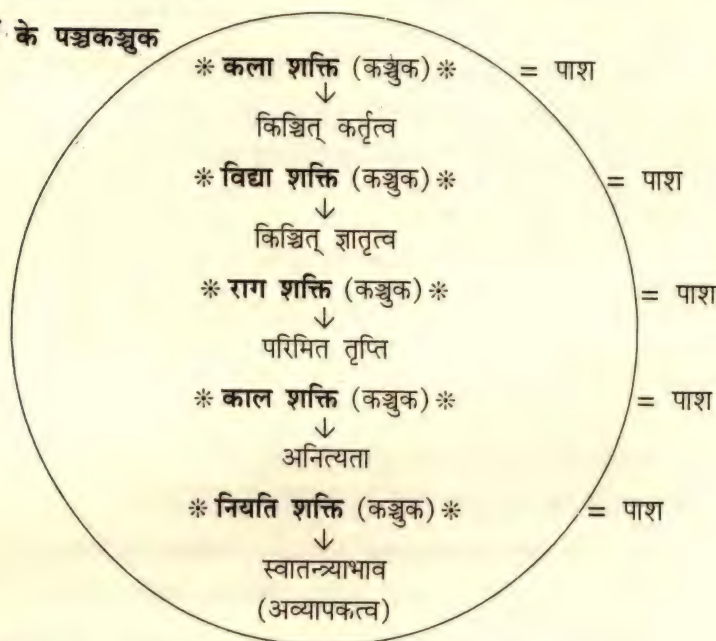 के पञ्चकञ्चुक
* कला शक्ति (कञ्चुक) * = पाश
↓
किञ्चित् कर्तृत्व
* विद्या शक्ति (कञ्चुक) * = पाश
↓
किञ्चित् ज्ञातृत्व
* राग शक्ति (कञ्चुक) * = पाश
↓
परिमित तृप्ति
* काल शक्ति (कञ्चुक) * = पाश
↓
अनित्यता
* नियति शक्ति (कञ्चुक) * = पाश
↓
स्वातन्त्र्याभाव
(अव्यापकत्व)